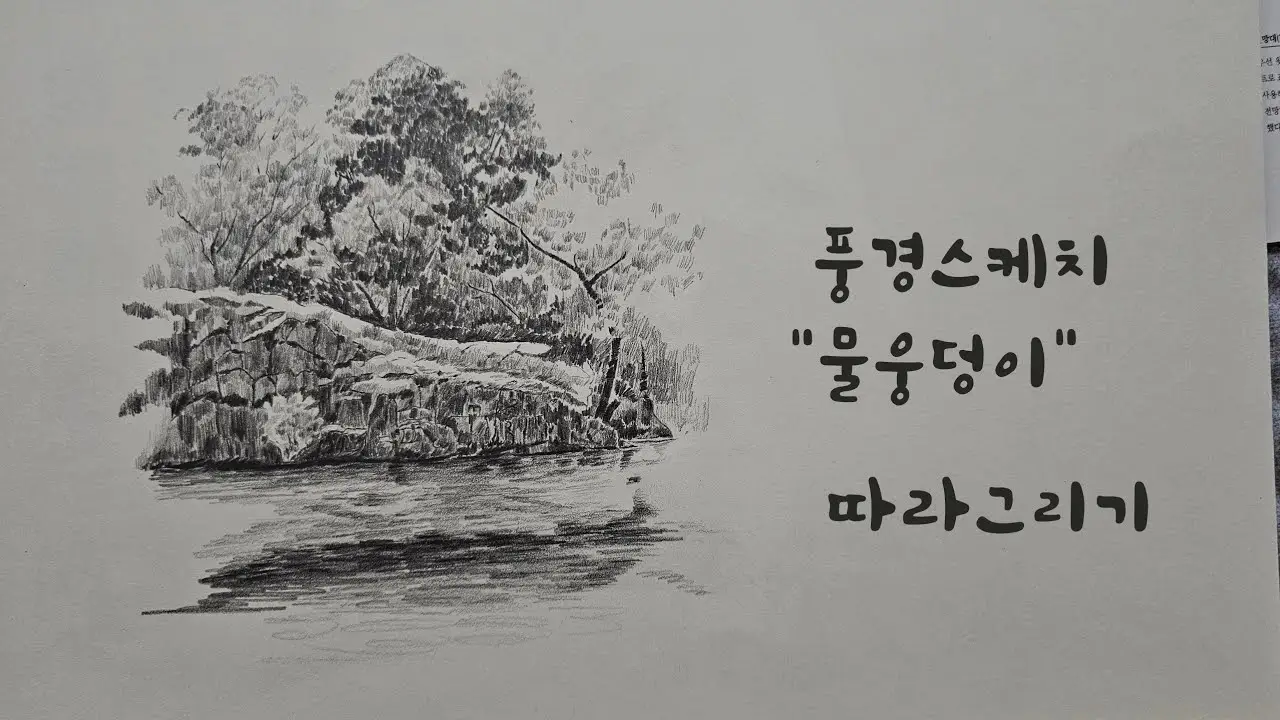 풍경스케치
"물웅덩이"
따라그리기